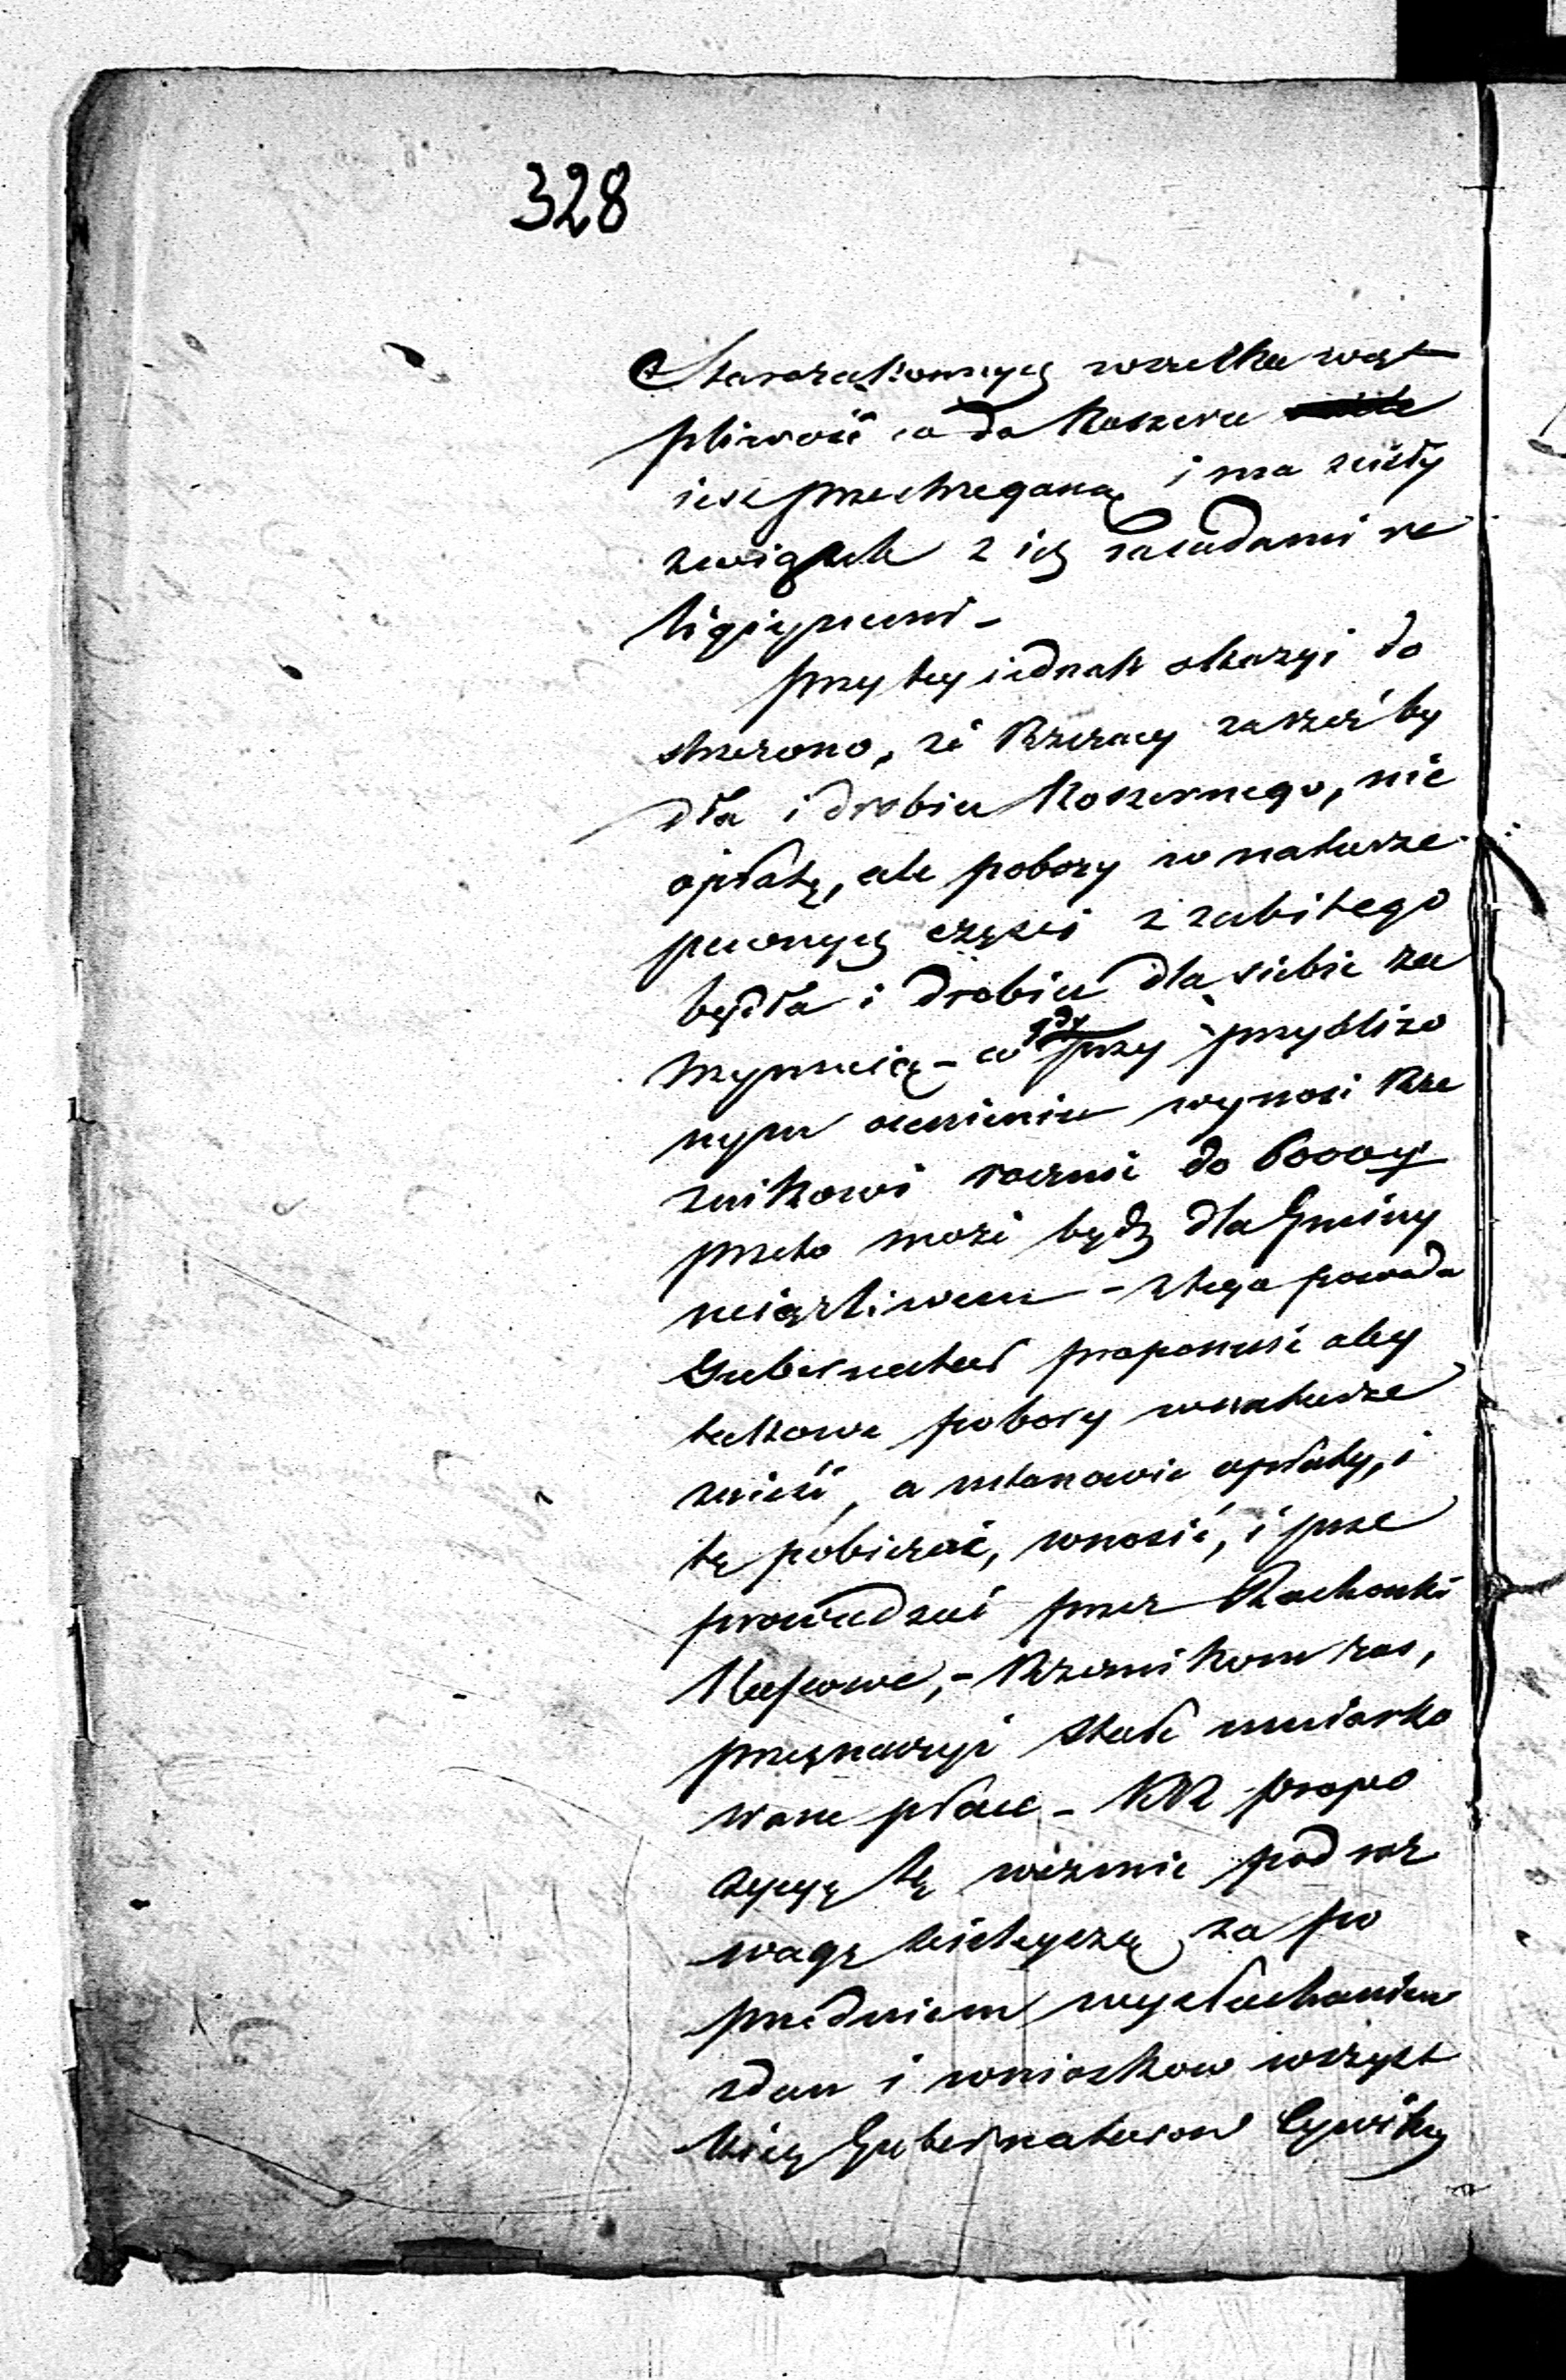 328
Starozakonnych wszelka wąt
pliwość co do Koszeru
iest przestrzeganą i ma ścisły
związek z ich zasadami re
ligijnemi -
przy tey iednak okazyi do
strzeżono, że Rzezacy za rzeź by
dła i drobiu Koszernego, nie
opłatę, ale pobory w naturze
pewnych części z zabitego
bydła i drobiu dla siebie za
trzymuią - co gdy przy przybliżo
nym ocenieniu wynosi Rze
znikowi rocznie do 6000
przeto może bydź dla Gminy
uciążliwem - z tego powodu
Gubernator proponuie aby
takowe pobory w naturze
znieść, a ustanowić opłaty, i
tę pobierać, wnosić, i prze
prowadzać przez Rachunki
Kassowe, - Rzeznikom zas,
przeznaczyć stałe umiarko
wane płace - propo
zycyę tę weźmie pod roz
wagę za po
przedniem wysłuchaniem
zdań i wniosków wszyst
kich Gubernatorow Cywilnych